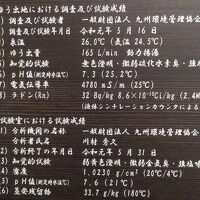 ゆう出地における調査及び試験成績
調査及び試験者 一般財団法人 九州環境管理協会
調査及び試験年月日 令和元年5月16日
泉温 26.0℃ (気温 24.5℃)
ゆう出量 165 L/min 動力揚湯
知覚的試験 無色澄明・微弱硫化水素臭・強塩味
pH値(測定時水温℃) 7.3 (25.2℃)
電気伝導率 4780 mS/m (25℃)
ラドン(Rn) 32 Bq/kg 8.6×10⁻¹⁰Ci/kg (2.4M
(液体シンチレーションカウンタによる
試験室における試験成績
1) 分析機関の名称 一般財団法人 九州環境管理協会
分析者氏名 川村 秀久
2) 分析終了年月日 令和元年5月31日
3) 知覚的試験 弱黄色澄明・微弱金気臭・強塩味
4) 密度 1.0230 g/cm³ (20℃/4℃)
5) pH値(測定時水温℃) 7.6 (21℃)
6) 蒸発残留物 33.7 g/kg (180℃)